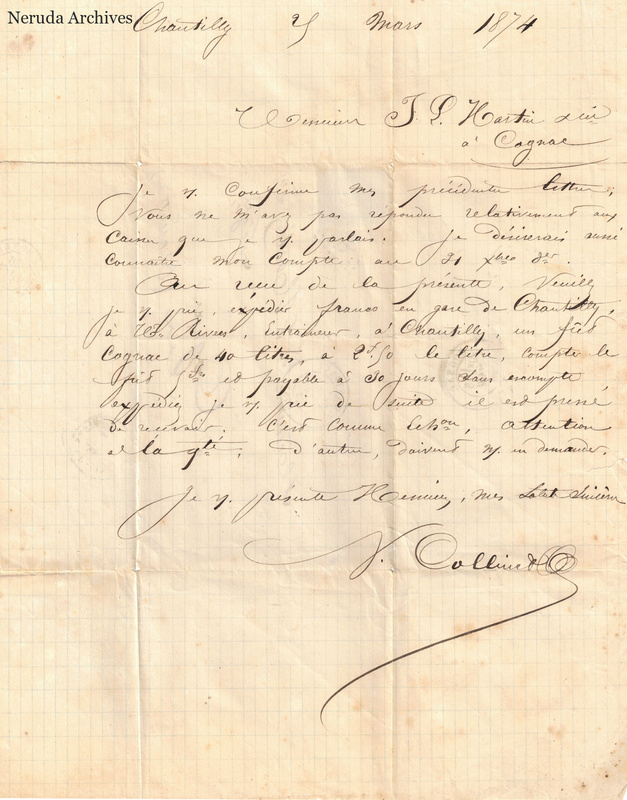 Neruda Archives
Chantilly 25 Mars 1874
Monsieur J. L. Martin
à Cognac
Je v. confirme mes précédente lettre,
Vous ne m'avez pas répondu relativement aux
caisses que je v. parlais. Je désirerais aussi
connaître mon compte au 31 Xbre der.
Au reçu de la présente, Veuillez
Je v. prie, expédier franco en gare de Chantilly,
à Rives, Entraineur, à Chantilly, un fût
Cognac de 40 litres, à 2f50 le litre, compter le
fût et payable à 30 jours sans escompte,
expédiez je v. prie de suite il est pressé
de recevoir. C'est comme échon, attention
à la qté, d'autres, doivent v. en demander.
Je v. présente Monsieur, mes Salut Sincères
Collins